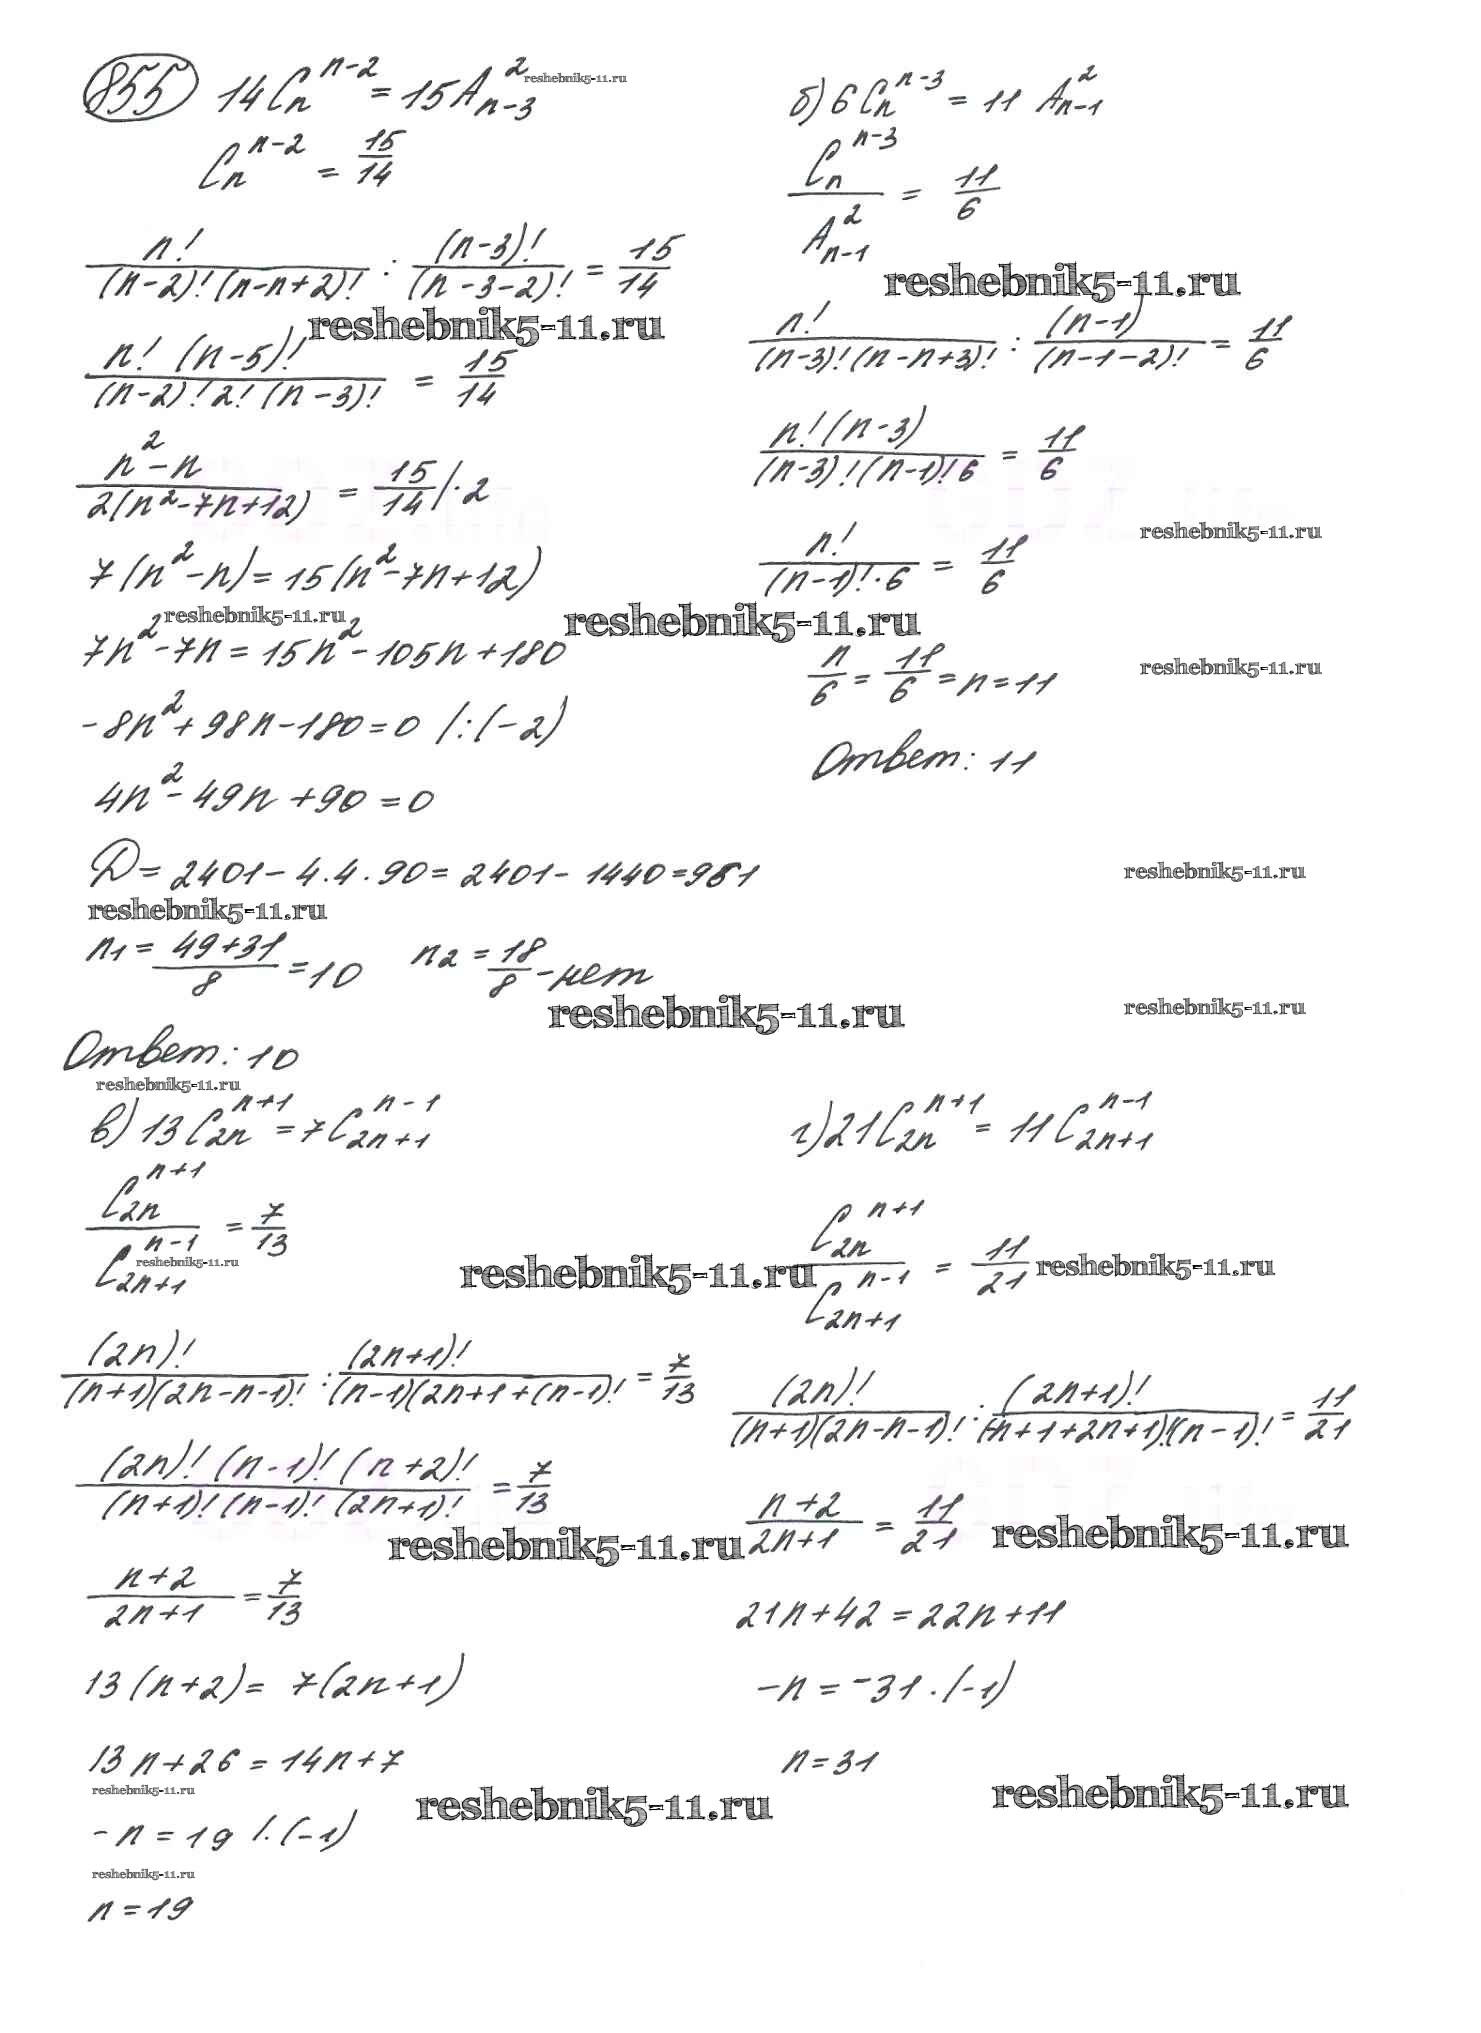 855 14C_n^{n-2} = 15A_{n-3}^2 reshebnik5-11.ru
C_n^{n-2} = 15/14
n!/((n-2)!(n-n+2)!) : (n-3)!/((n-3-2)!) = 15/14
reshebnik5-11.ru
n!(n-5)!/((n-2)!2!(n-3)!) = 15/14
(n^2-n)/(2(n^2-7n+12)) = 15/14 |·2
7(n^2-n) = 15(n^2-7n+12)
reshebnik5-11.ru
7n^2-7n = 15n^2-105n+180
-8n^2+98n-180=0 /:(-2)
4n^2-49n+90=0
D = 2401-4·4·90 = 2401-1440=961
reshebnik5-11.ru
n_1 = (49+31)/8 = 10 n_2 = 18/8 - нет
reshebnik5-11.ru
Ответ: 10
reshebnik5-11.ru
б) 6C_n^{n-3} = 11 A_{n-1}^2
C_n^{n-3}/A_{n-1}^2 = 11/6
reshebnik5-11.ru
n!/((n-3)!(n-n+3)!) : (n-1)/((n-1-2)!) = 11/6
n!(n-3)/((n-3)!(n-1)!6) = 11/6
reshebnik5-11.ru
n!/((n-1)!·6) = 11/6
reshebnik5-11.ru
n/6 = 11/6 = n = 11
reshebnik5-11.ru
Ответ: 11
reshebnik5-11.ru
reshebnik5-11.ru
в) 13C_{2n}^{n+1} = 7C_{2n+1}^{n-1}
C_{2n}^{n+1}/C_{2n+1}^{n-1} = 7/13
reshebnik5-11.ru
reshebnik5-11.ru
(2n)!/((n+1)(2n-n-1)!) : (2n+1)!/((n-1)(2n+1+(n-1)!) = 7/13
(2n)!(n-1)!(n+2)!/((n+1)!(n-1)!(2n+1)!) = 7/13
reshebnik5-11.ru
(n+2)/(2n+1) = 7/13
13(n+2) = 7(2n+1)
13n+26 = 14n+7
reshebnik5-11.ru
reshebnik5-11.ru
-n = 19 /·(-1)
reshebnik5-11.ru
n = 19
г) 21C_{2n}^{n+1} = 11C_{2n+1}^{n-1}
C_{2n}^{n+1}/C_{2n+1}^{n-1} = 11/21
reshebnik5-11.ru
(2n)!/((n+1)(2n-n-1)!) : (2n+1)!/((-n+1+2n+1)!(n-1)!) = 11/21
(n+2)/(2n+1) = 11/21
reshebnik5-11.ru
21n+42 = 22n+11
-n = -31·(-1)
n = 31
reshebnik5-11.ru